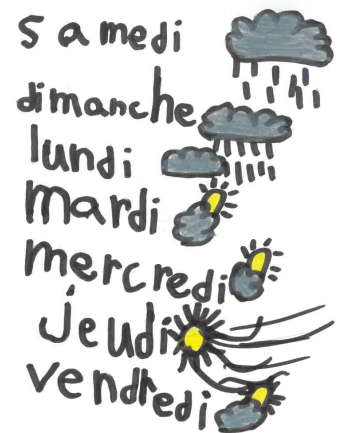 samedi
dimanche
lundi
mardi
mercredi
jeudi
vendredi